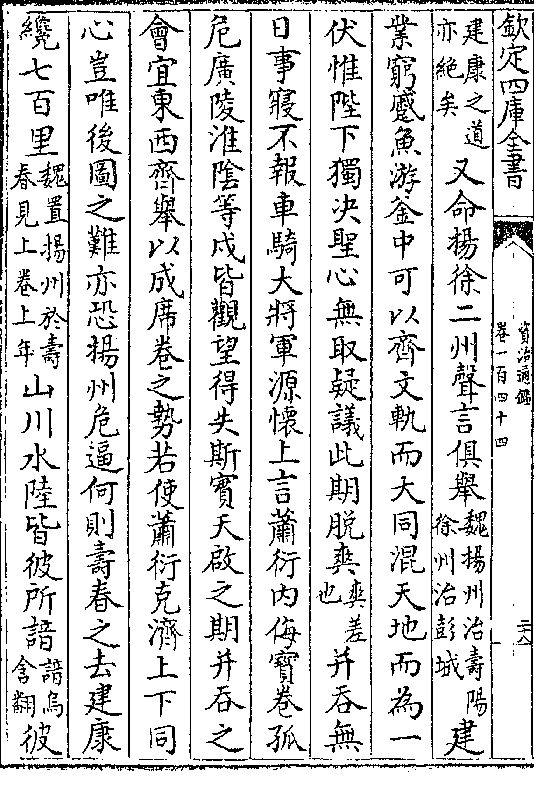 欽定四庫全書
資治通鑑
卷一百四十四
建康之道亦絶矣又命揚徐二州聲言俱舉魏揚州治壽陽徐州治彭城建
業窮蹙魚游釜中可以齊文軌而大同混天地而為一
伏惟陛下獨決聖心無取疑議此期脱爽爽差也并吞無
日事寢不報車騎大將軍源懷上言蕭衍内侮寶卷孤
危廣陵淮陰等戍皆觀望得失斯實天啟之期并吞之
會宜東西齊舉以成席卷之勢若使蕭衍克濟上下同
心豈唯後圖之難亦恐揚州危逼何則壽春之去建康
纔七百里魏置揚州於壽春見上卷上年山川水陸皆彼所諳諳烏含翻彼